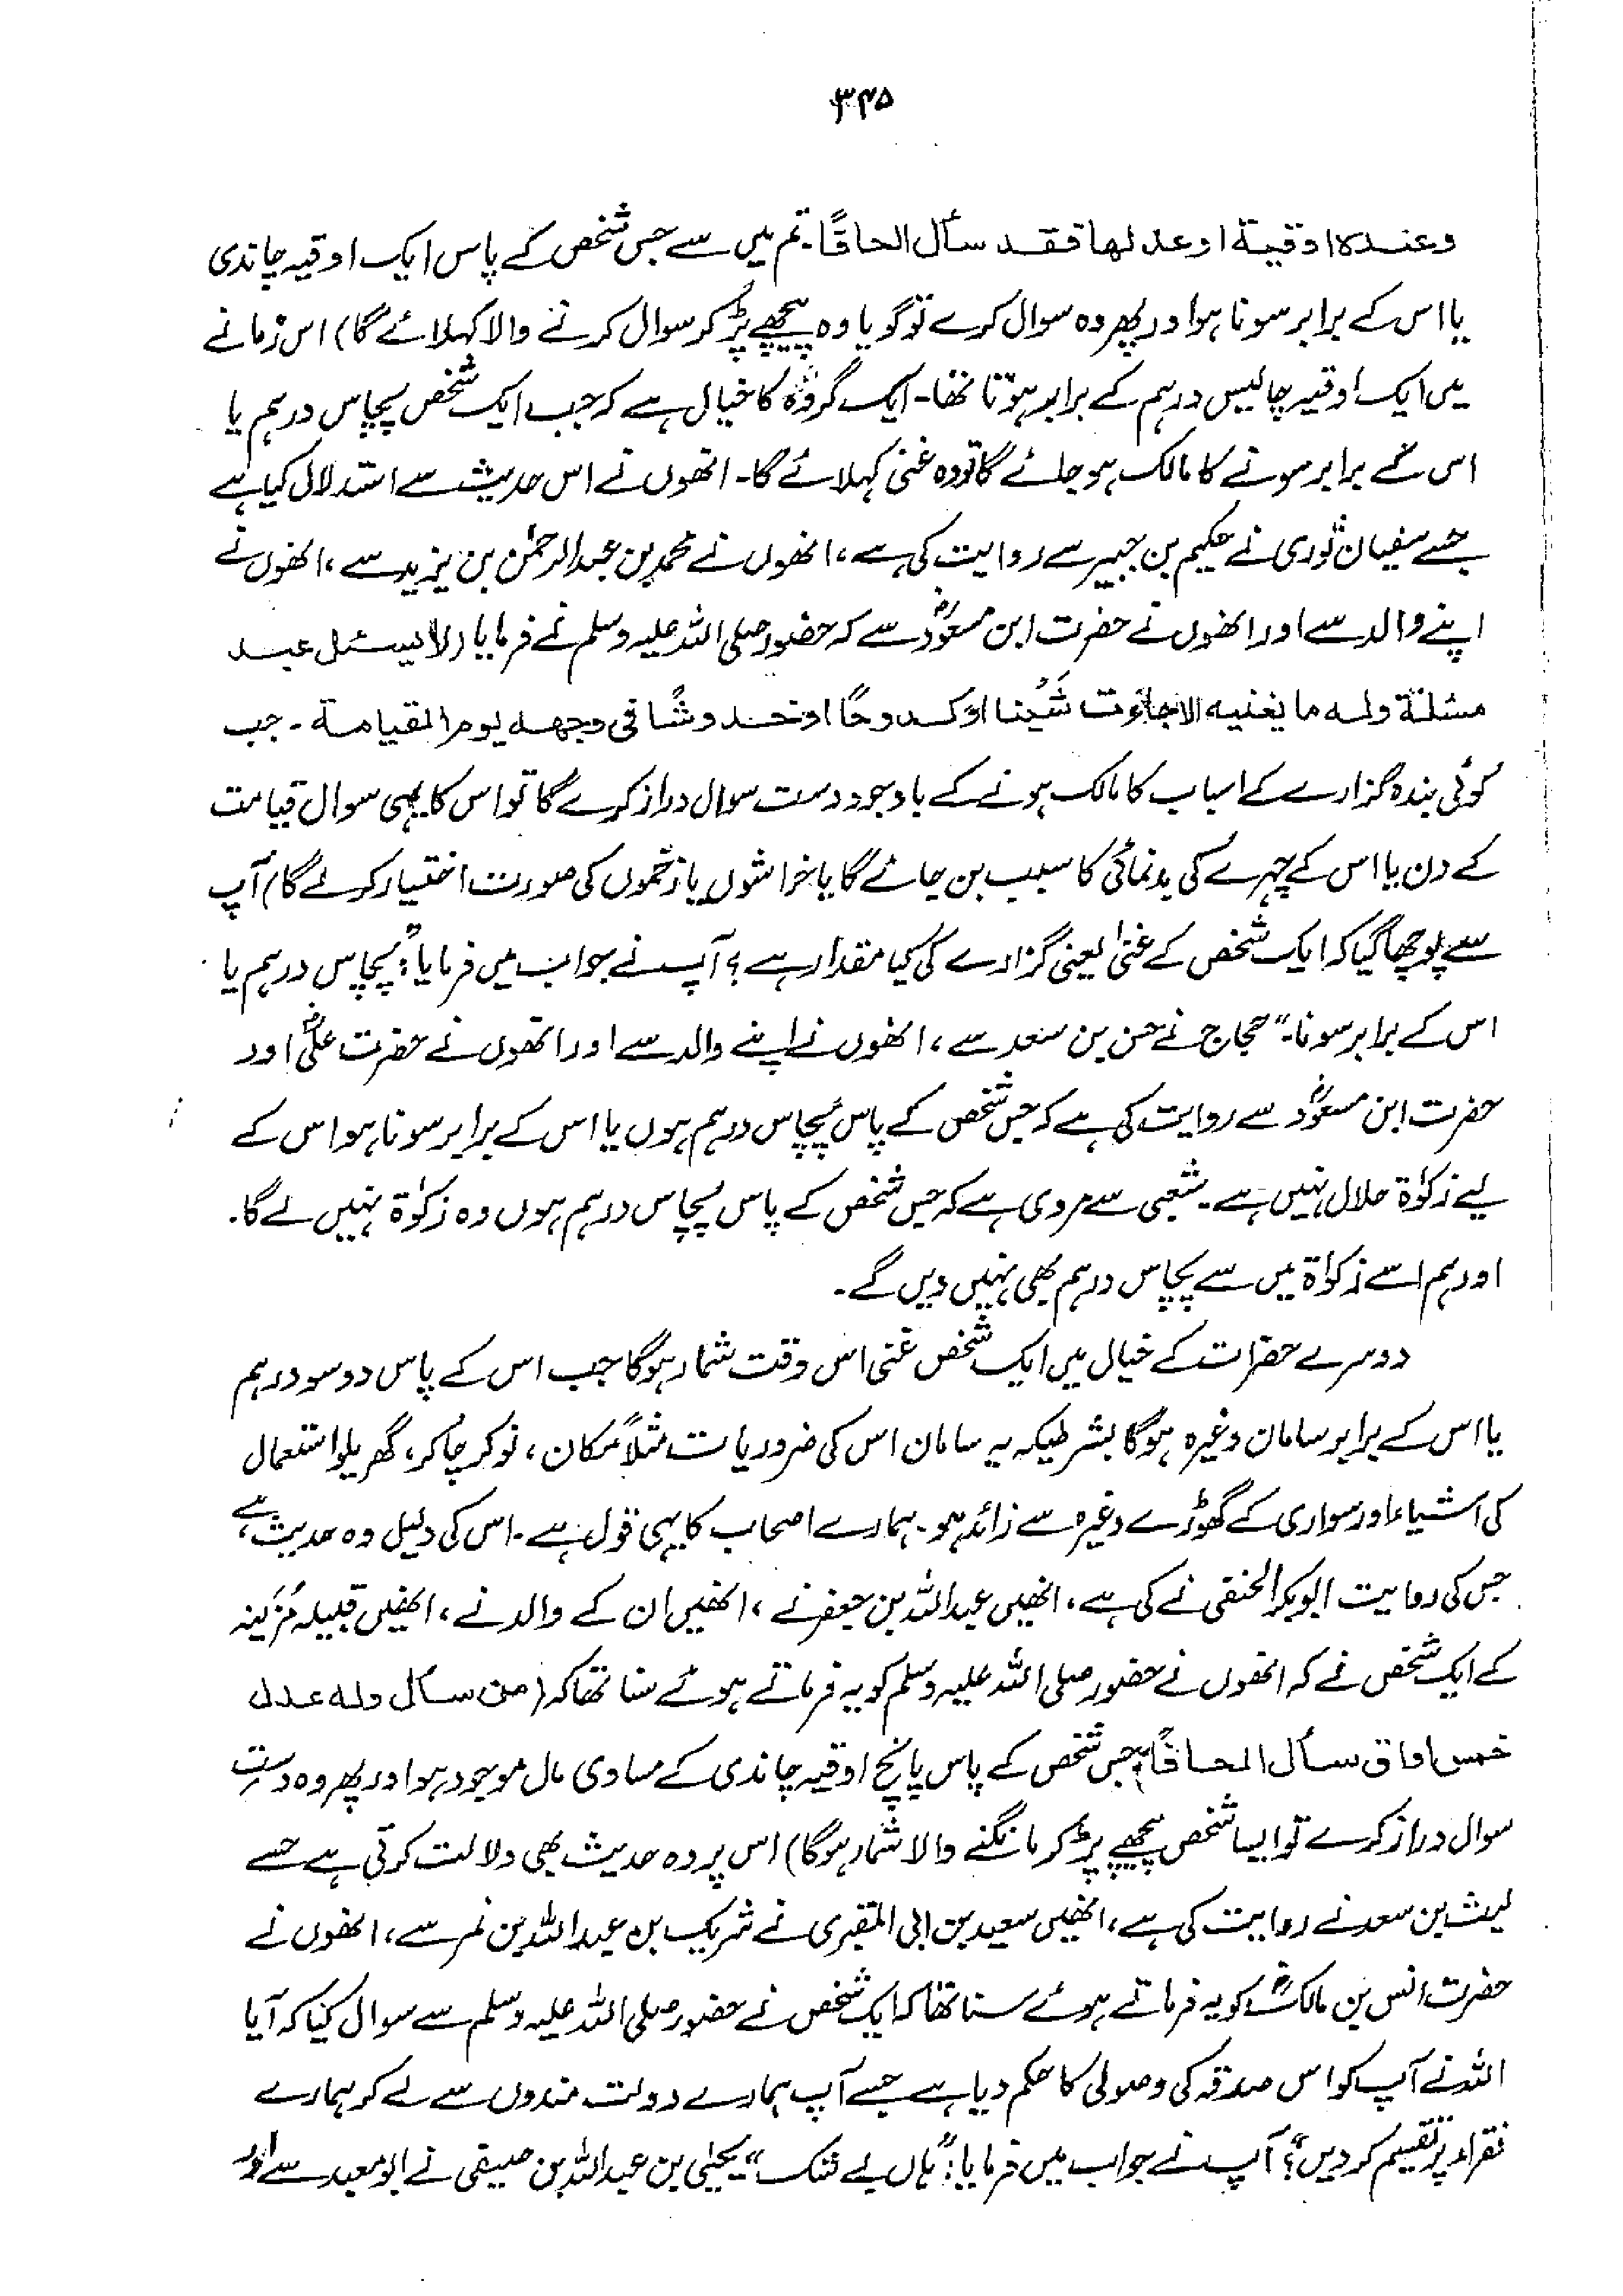 ۳۴۵
وعندہ اوقیۃ او عدلھا فقد سأل الحافًا۔ تم میں سے جس شخص کے پاس ایک اوقیہ چاندی
یا اس کے برابر سونا ہو اور پھر وہ سوال کرے تو گویا وہ پیچھے پڑ کر سوال کرنے والا کہلائے گا) اس زمانے
میں ایک اوقیہ چالیس درہم کے برابر ہوتا تھا۔ ایک گروہ کا خیال ہے کہ جب ایک شخص پچاس درہم یا
اس کے برابر سونے کا مالک ہو جائے گا تو وہ غنی کہلائے گا۔ انھوں نے اس حدیث سے استدلال کیا ہے
جسے سفیان ثوری نے حکیم بن جبیر سے روایت کی ہے، انھوں نے محمد بن عبدالرحمٰن بن یزید سے، انھوں نے
اپنے والد سے اور انھوں نے حضرت ابن مسعودؓ سے کہ حضور صلی اللہ علیہ وسلم نے فرمایا (لا یسئل عبد
مسئلۃ ولہ ما یغنیہ الا جاءت شَیْنا او کدوحًا او خدوشًا فی وجھہ یوم القیامۃ۔ جب
کوئی بندہ گزارے کے اسباب کا مالک ہونے کے باوجود دست سوال دراز کرے گا تو اس کا یہی سوال قیامت
کے دن یا اس کے چہرے کی بدنمائی کا سبب بن جائے گا یا خراشوں یا زخموں کی صورت اختیار کر لے گا) آپ
سے پوچھا گیا کہ ایک شخص کے غنیٰ یعنی گزارے کی کیا مقدار ہے؟ آپ نے جواب میں فرمایا: "پچاس درہم یا
اس کے برابر سونا۔" حجاج نے حسن بن سعد سے، انھوں نے اپنے والد سے اور انھوں نے حضرت علیؓ اور
حضرت ابن مسعودؓ سے روایت کی ہے کہ جس شخص کے پاس پچاس درہم ہوں یا اس کے برابر سونا ہو اس کے
لیے زکوٰۃ حلال نہیں ہے۔ شعبی سے مروی ہے کہ جس شخص کے پاس پچاس درہم ہوں وہ زکوٰۃ نہیں لے گا۔
اور ہم اسے زکوٰۃ میں سے پچاس درہم بھی نہیں دیں گے۔
دوسرے حضرات کے خیال میں ایک شخص غنی اس وقت شمار ہو گا جب اس کے پاس دو سو درہم
یا اس کے برابر سامان وغیرہ ہو گا بشرطیکہ یہ سامان اس کی ضروریات مثلاً مکان، نوکر چاکر، گھریلو استعمال
کی اشیاء اور سواری کے گھوڑے وغیرہ سے زائد ہو۔ ہمارے اصحاب کا یہی قول ہے۔ اس کی دلیل وہ حدیث ہے،
جس کی روایت ابوبکر الحنفی نے کی ہے، انھیں عبداللہ بن جعفر نے، انھیں ان کے والد نے، انھیں قبیلہ مُزَینہ
کے ایک شخص نے کہ انھوں نے حضور صلی اللہ علیہ وسلم کو یہ فرماتے ہوئے سنا تھا کہ (من سأل ولہ عدل
خمس اواق سأل الحافًا، جس شخص کے پاس پانچ اوقیہ چاندی کے مساوی مال موجود ہو اور پھر وہ دستِ
سوال دراز کرے تو ایسا شخص پیچھے پڑ کر مانگنے والا شمار ہو گا) اس پر وہ حدیث بھی دلالت کرتی ہے جسے
لیث بن سعد نے روایت کی ہے، انھیں سعید بن ابی المقبری نے شریک بن عبداللہ بن نمر سے، انھوں نے
حضرت انس بن مالکؓ کو یہ فرماتے ہوئے سنا تھا کہ ایک شخص نے حضور صلی اللہ علیہ وسلم سے سوال کیا کہ آیا
اللہ نے آپ کو اس صدقہ کی وصولی کا حکم دیا ہے جسے آپ ہمارے دولت مندوں سے لے کر ہمارے
فقراء پر تقسیم کر دیں؟ آپ نے جواب میں فرمایا: "ہاں بے شک" یحییٰ بن عبداللہ بن صیفی نے ابو معبد سے اور